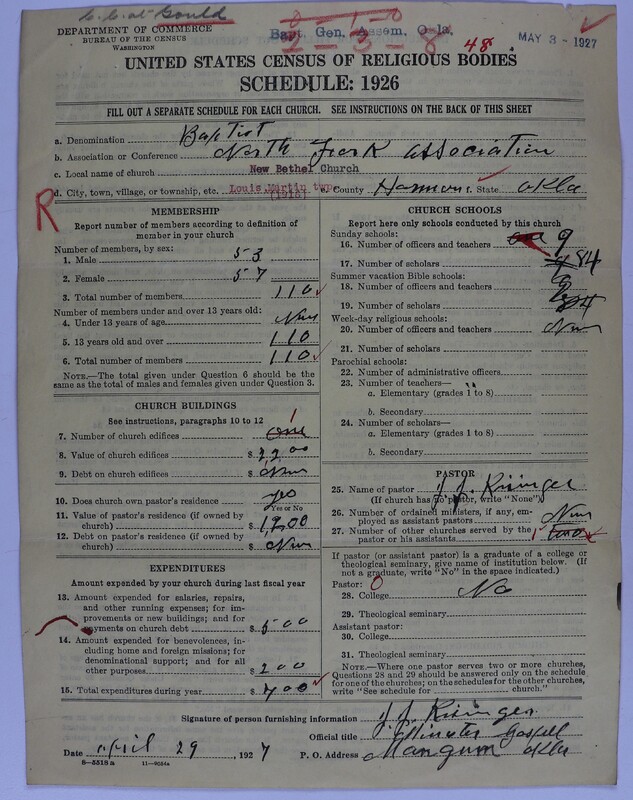 DEPARTMENT OF COMMERCE
BUREAU OF THE CENSUS
WASHINGTON
Bapt. Gen. Assem. Okla.
2-3-8
48
MAY 3 - 1927
UNITED STATES CENSUS OF RELIGIOUS BODIES
SCHEDULE: 1926
FILL OUT A SEPARATE SCHEDULE FOR EACH CHURCH. SEE INSTRUCTIONS ON THE BACK OF THIS SHEET
a. Denomination Baptist
b. Association or Conference North Fork association
c. Local name of church New Bethel Church
d. City, town, village, or township, etc. Louis Martin twp. e. County Harmon f. State okla
(1916)
R
MEMBERSHIP
Report number of members according to definition of
member in your church
Number of members, by sex:
1. Male 53
2. Female 57
3. Total number of members 110
Number of members under and over 13 years old:
4. Under 13 years of age None
5. 13 years old and over 110
6. Total number of members 110
NOTE.—The total given under Question 6 should be the
same as the total of males and females given under Question 3.
CHURCH BUILDINGS
See instructions, paragraphs 10 to 12
7. Number of church edifices one 1
8. Value of church edifices $ 2200
9. Debt on church edifices $ None
10. Does church own pastor's residence yes
Yes or No
11. Value of pastor's residence (if owned by
church) $ 1200
12. Debt on pastor's residence (if owned by
church) $ None
EXPENDITURES
Amount expended by your church during last fiscal year
13. Amount expended for salaries, repairs,
and other running expenses; for im-
provements or new buildings; and for
payments on church debt $ 500
14. Amount expended for benevolences, in-
cluding home and foreign missions; for
denominational support; and for all
other purposes $ 200
15. Total expenditures during year $ 700
CHURCH SCHOOLS
Report here only schools conducted by this church
Sunday schools:
16. Number of officers and teachers 9
17. Number of scholars 84
Summer vacation Bible schools:
18. Number of officers and teachers
19. Number of scholars
Week-day religious schools:
20. Number of officers and teachers None
21. Number of scholars
Parochial schools:
22. Number of administrative officers
23. Number of teachers—
a. Elementary (grades 1 to 8)
b. Secondary
24. Number of scholars—
a. Elementary (grades 1 to 8)
b. Secondary
PASTOR
25. Name of pastor J. J. Risinger
(If church has no pastor, write "None")
26. Number of ordained ministers, if any, em-
ployed as assistant pastors None
27. Number of other churches served by the
pastor or his assistants 1 two
If pastor (or assistant pastor) is a graduate of a college or
theological seminary, give name of institution below. (If
not a graduate, write "No" in the space indicated.)
Pastor: 0
28. College No
29. Theological seminary
Assistant pastor:
30. College
31. Theological seminary
NOTE.—Where one pastor serves two or more churches,
Questions 28 and 29 should be answered only on the schedule
for one of the churches; on the schedules for the other churches,
write "See schedule for church."
Signature of person furnishing information J. J. Risinger
Official title Minister Gospell
Date april 29, 1927 P. O. Address Mangum okla
8—5518a 11—9054a